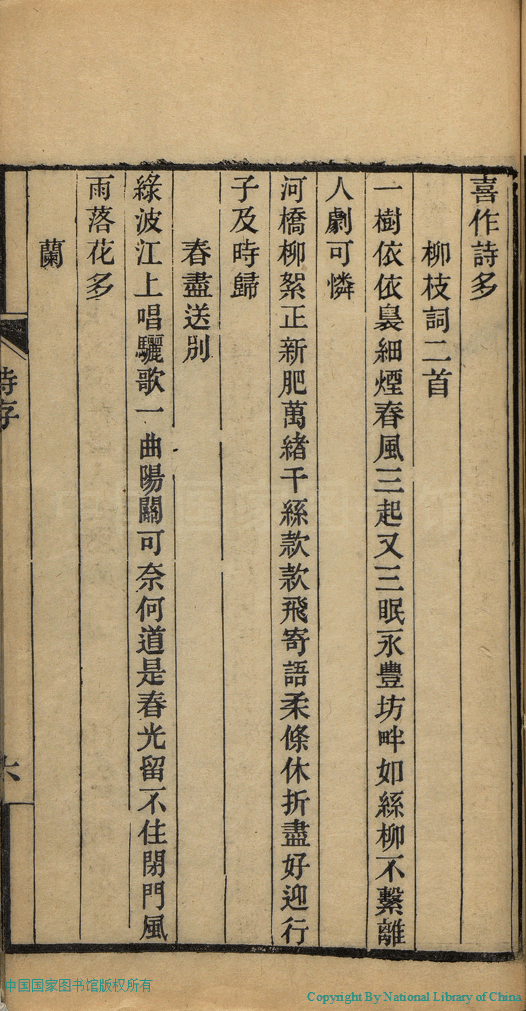 喜作詩多
柳枝詞二首
一樹依依裊細煙春風三起又三眠永豐坊畔如絲柳不繫離
人劇可憐
河橋柳絮正新肥萬緒千絲款款飛寄語柔條休折盡好迎行
子及時歸
春盡送別
綠波江上唱驪歌一曲陽關可奈何道是春光留不住閉門風
雨落花多
蘭
詩存
六
中国国家图书馆版权所有
Copyright By National Library of China